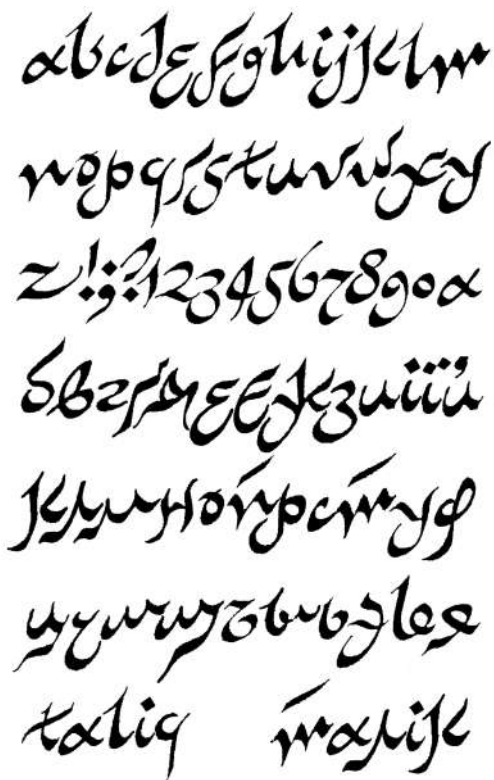 abcdefghijklm
nopqrstuvwxy
z!;?1234567890а
бвгґдеєжзиіїй
клмнопрстуф
цчшщъыьэюя
taliq талік